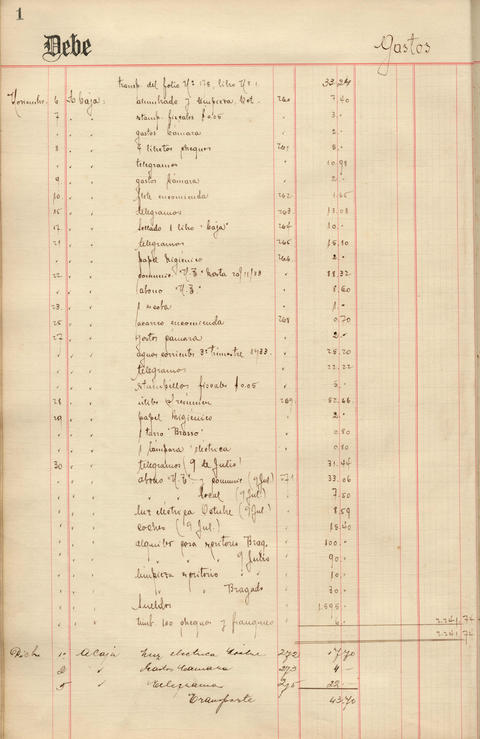 1
Debe Gastos
transp. del folio Nº 178, libro Nº 1. 33.24
Noviembre 6 A Caja: alumbrado y limpieza, Oct. 260 7.40
7 " " stamp. fiscales $0.05 " 3.-
" " " gastos Cámara " 2.-
8 " " 4 libretos cheques 261 8.-
" " " telegramos " 10.98
9 " " gastos Cámara " 2.-
10 " " flete encomienda 262 1.65
15 " " telegramos 263 13.08
17 " " sellado 1 libro "Caja" 264 10.-
21 " " telegramos 265 15.10
" " " papel higiénico 266 2.-
22 " " hasta 20/11/33 " 18.32
" " " abono " 8.60
23 " " 1 " 1.-
25 " " acarreo encomienda 268 0.70
27 " " gastos cámara " 2.-
" " " aguas corrientes 3º trimestre 1933 " 28.20
" " " telegramos " 22.22
" " " stampillos fiscales $0.05 " 5.-
28 " " útiles 269 52.66
29 " " papel higiénico " 2.-
" " " 1 tarro "Brasso" " 0.80
" " " 1 lámpara eléctrica " 0.80
30 " " telegramos (9 de Julio) " 31.44
" " " abono y (9 Jul.) 271 33.06
" " " " " local (9 Jul.) " 7.50
" " " luz eléctrica Octubre (9 Jul.) " 8.59
" " " coches (9 Jul.) " 18.40
" " " alquiler casa escritorio Brag. " 100.-
" " " " " " 9 Julio " 90.-
" " " limpieza escritorio " " 10.-
" " " " " Bragado " 30.-
" " " sueldos " 1.595.-
" " " timb. 100 cheques y franqueo " 6.- 2.241,74
2.241,74
Dicb. 1º A Caja Luz electrica 272 17.70
2 " " Gastos Camara 273 4.-
5 " " Telegrama 275 22.-
Transporte 43.70